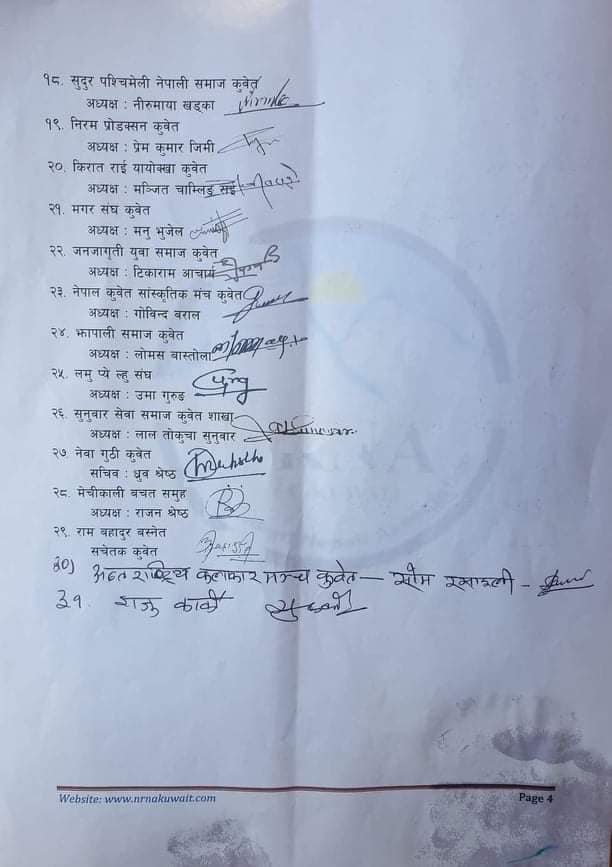 १८. सुदुर पश्चिमेली नेपाली समाज कुवेत
अध्यक्ष : नीरुमाया खड्का
१९. निरम प्रोडक्सन कुवेत
अध्यक्ष : प्रेम कुमार जिमी
२०. किरात राई यायोक्खा कुवेत
अध्यक्ष : मञ्जित चाम्लिङ राई
२१. मगर संघ कुवेत
अध्यक्ष : मनु भुजेल
२२. जनजागृती युवा समाज कुवेत
अध्यक्ष : टिकाराम आचार्य
२३. नेपाल कुवेत सांस्कृतिक मंच कुवेत
अध्यक्ष : गोविन्द बराल
२४. झापाली समाज कुवेत
अध्यक्ष : लोमस बास्तोला
२५. लमु प्ये ल्हु संघ
अध्यक्ष : उमा गुरुङ
२६. सुनुवार सेवा समाज कुवेत शाखा
अध्यक्ष : लाल तोकुचा सुनुवार
२७. नेवा गुठी कुवेत
सचिव : ध्रुव श्रेष्ठ
२८. मेचीकाली बचत समुह
अध्यक्ष : राजन श्रेष्ठ
२९. राम बहादुर बस्नेत
सचेतक कुवेत
३०) कलाकार मञ्च कुवेत – सोम
३१. राजु कार्की
Website: www.nrnakuwait.com
Page 4